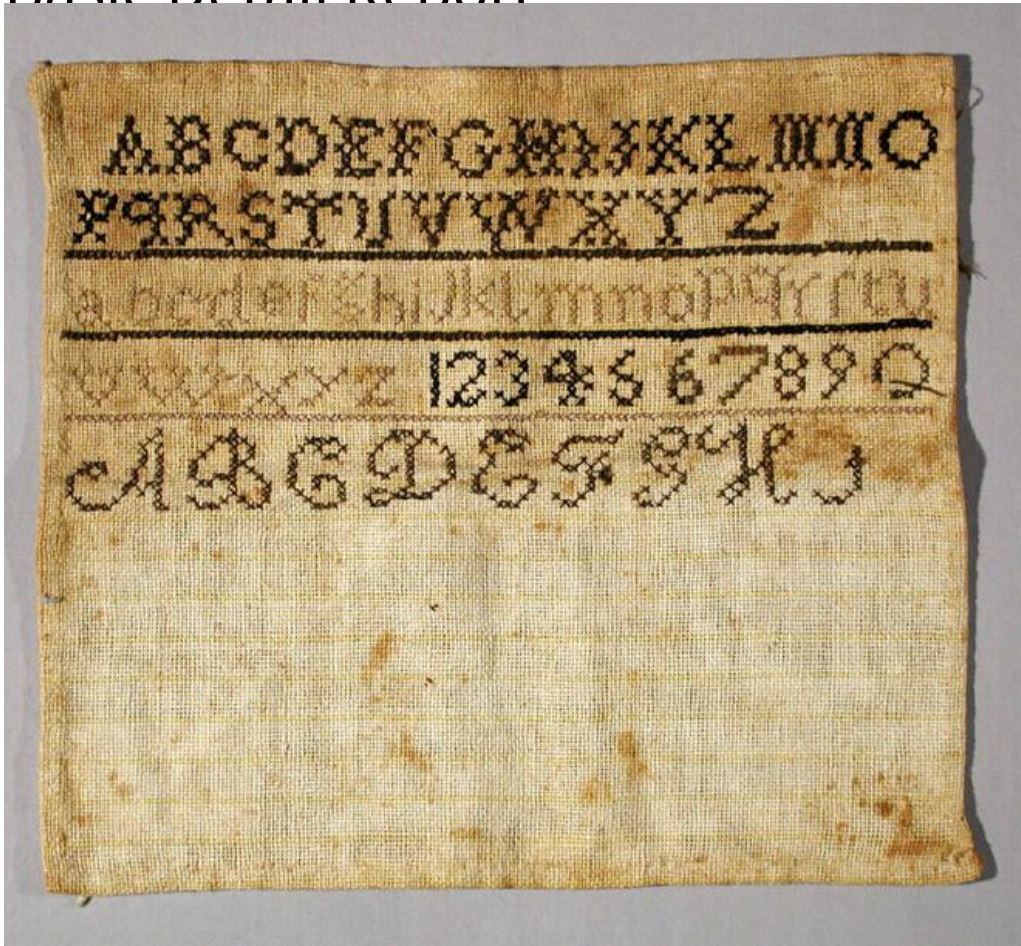 A B C D E F G H I J K L M N O
P q R S T U V W X Y Z
a b c d e f g h i j k l m n o p q r r t u
v w x y z 1 2 3 4 5 6 7 8 9 0
A B C D E F G H I